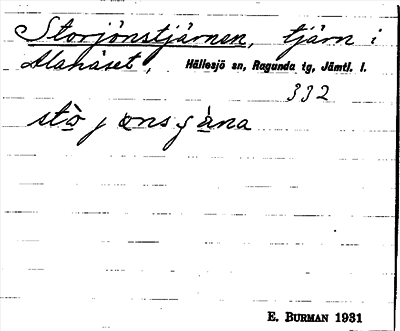 Storjönstjärnen, tjärn i
Alanäset, Hällesjö sn, Ragunda tg, Jämtl. l.
332
E. BURMAN 1931